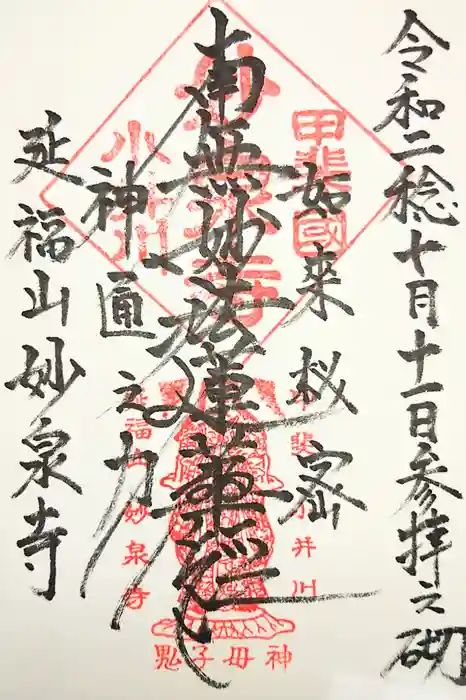 令和二稔十月十一日参拝之砌
如来秘密
南無妙法蓮華経
神通之力
延福山妙泉寺
甲斐國
小井川
甲斐 小井川
延福山 妙泉寺
鬼子母神